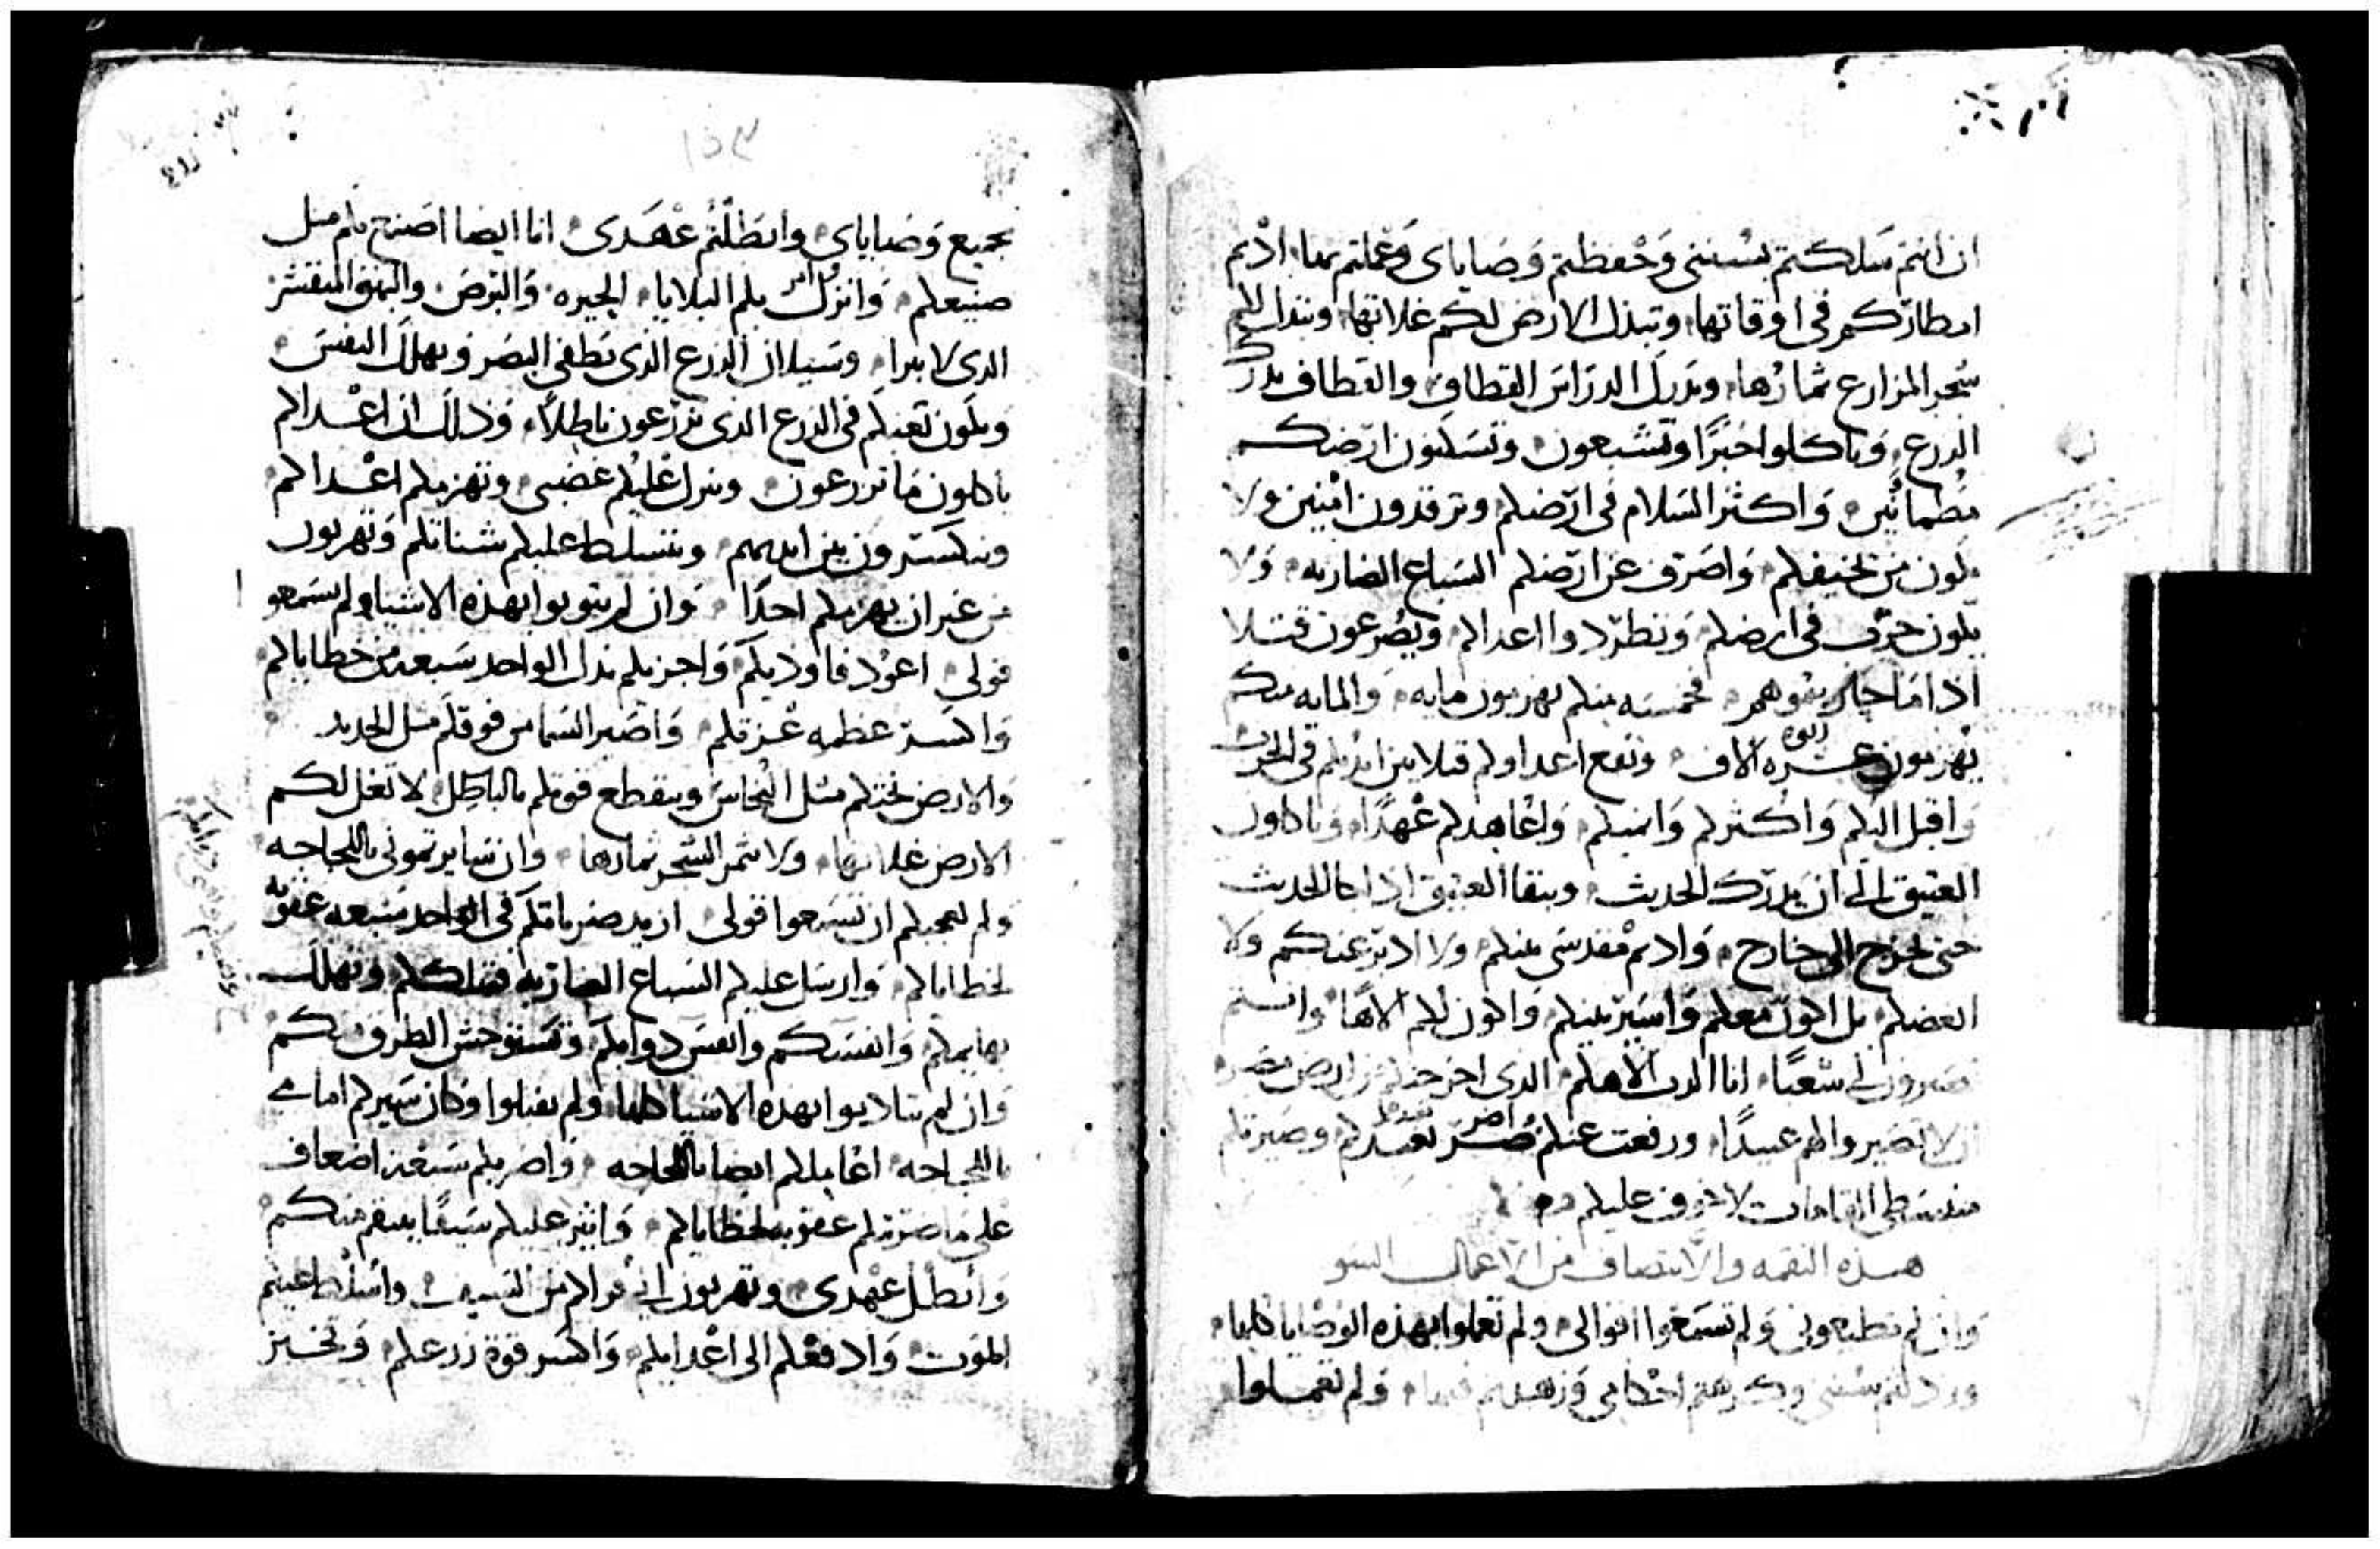 ان انتم سلكتم بسنني وحفظتم وصاياى وعملتم بها اديم
امطاركم فى اوقاتها وتبذل الارض لكم غلاتها وتبدل لكم
شجر المزارع ثمارها ويدرك الدراس القطاف والقطاف يدرك
الزرع وتاكلوا خبزا وتشبعون وتسكنون ارضكم
مطمانين واكثر السلام فى ارضكم وترقدون امنين ولا
يكون من يخيفكم واصرف عن ارضكم السباع الضاريه ولا
يكون حرب فى ارضكم وتطردوا اعداكم ويصرعون قتلا
اذا ما حاربتموهم فخمسه منكم يهزمون مايه والمايه منكم
يهزمون عشره الاف وتقع اعداوكم قتلا بين ايديكم فى الحرب
واقبل اليكم واكثركم وانميكم واعاهدكم عهدا وتاكلون
العتيق الى ان يدرك الحديث ويبقا العتيق اذا جا الحديث
حتى يخرج الى خارج واديم مقدسى منكم ولا ادبر عنكم ولا
ابغضكم بل اكون معكم واسير بينكم واكون لكم الاها وانتم
تصيرون لى شعبا انا الرب الاهكم الذى اخرجتكم من ارض مصر
ان لا تصيروا لهم عبيدا ورفعت عنكم تعبدكم وصيرتكم
منبسطى القامات لا خوف عليكم
هذه النقمه والانتصاف من الاعمال السو
وان لم تطيعونى ولم تسمعوا اقوالى ولم تعملوا بهذه الوصايا كلها
ورذلتم سننى وكرهتم احكامى وزهدتم فيها ولم تعملوا
١٥٣
بجميع وصاياى وابطلتم عهدى انا ايضا اصنع بكم مثل
صنيعكم وانزل بكم البلايا الحيره والبرص والبهق المنقشر
الذى لا يبرا وسيلان الزرع الذى يطفى البصر ويهلك النفس
ويكون تعبكم فى الزرع الذى تزرعون باطلا وذلك ان اعداكم
ياكلون ما تزرعون وينزل عليكم غضبى وتهزمكم اعداكم
وتنكسرون بين ايديهم وتتسلط عليكم شناتكم وتهربون
من غير ان يهزمكم احدا وان لم يتوبوا بهذه الاشيا ولم يسمعو
قولى اعود فاوذيكم واجزيكم بدل الواحد سبعه من خطاياكم
واكسر عظمه عزتكم واصير السما من فوقكم مثل الحديد
والارض تحتكم مثل النحاس وينقطع قوتكم بالباطل لا تغل لكم
الارض غلاتها ولا يثمر الشجر ثمارها وان سايرتمونى باللجاجه
ولم يعجبكم ان تسمعوا قولى ازيد ضرباتكم فى الواحد سبعه عقوبه
لخطاياكم وارسل عليكم السباع الضاريه فتاكلكم وتهلك
بهايمكم وانفسكم وانفس دوابكم وتستوحش الطرق بكم
وان لم تتادبوا بهذه الاشيا كلها ولم تقبلوا وكان سيركم امامى
باللجاجه اعاملكم ايضا باللجاجه واضربكم سبعه اضعاف
على ما ضربتكم عقوبه لخطاياكم واثير عليكم سيفا ينتقم منكم
وابطل عهدى وتهربون الى قراكم من السيف واسلط عليكم
الموت وادفعكم الى اعدايكم واكسر قوة زرعكم وتخبز